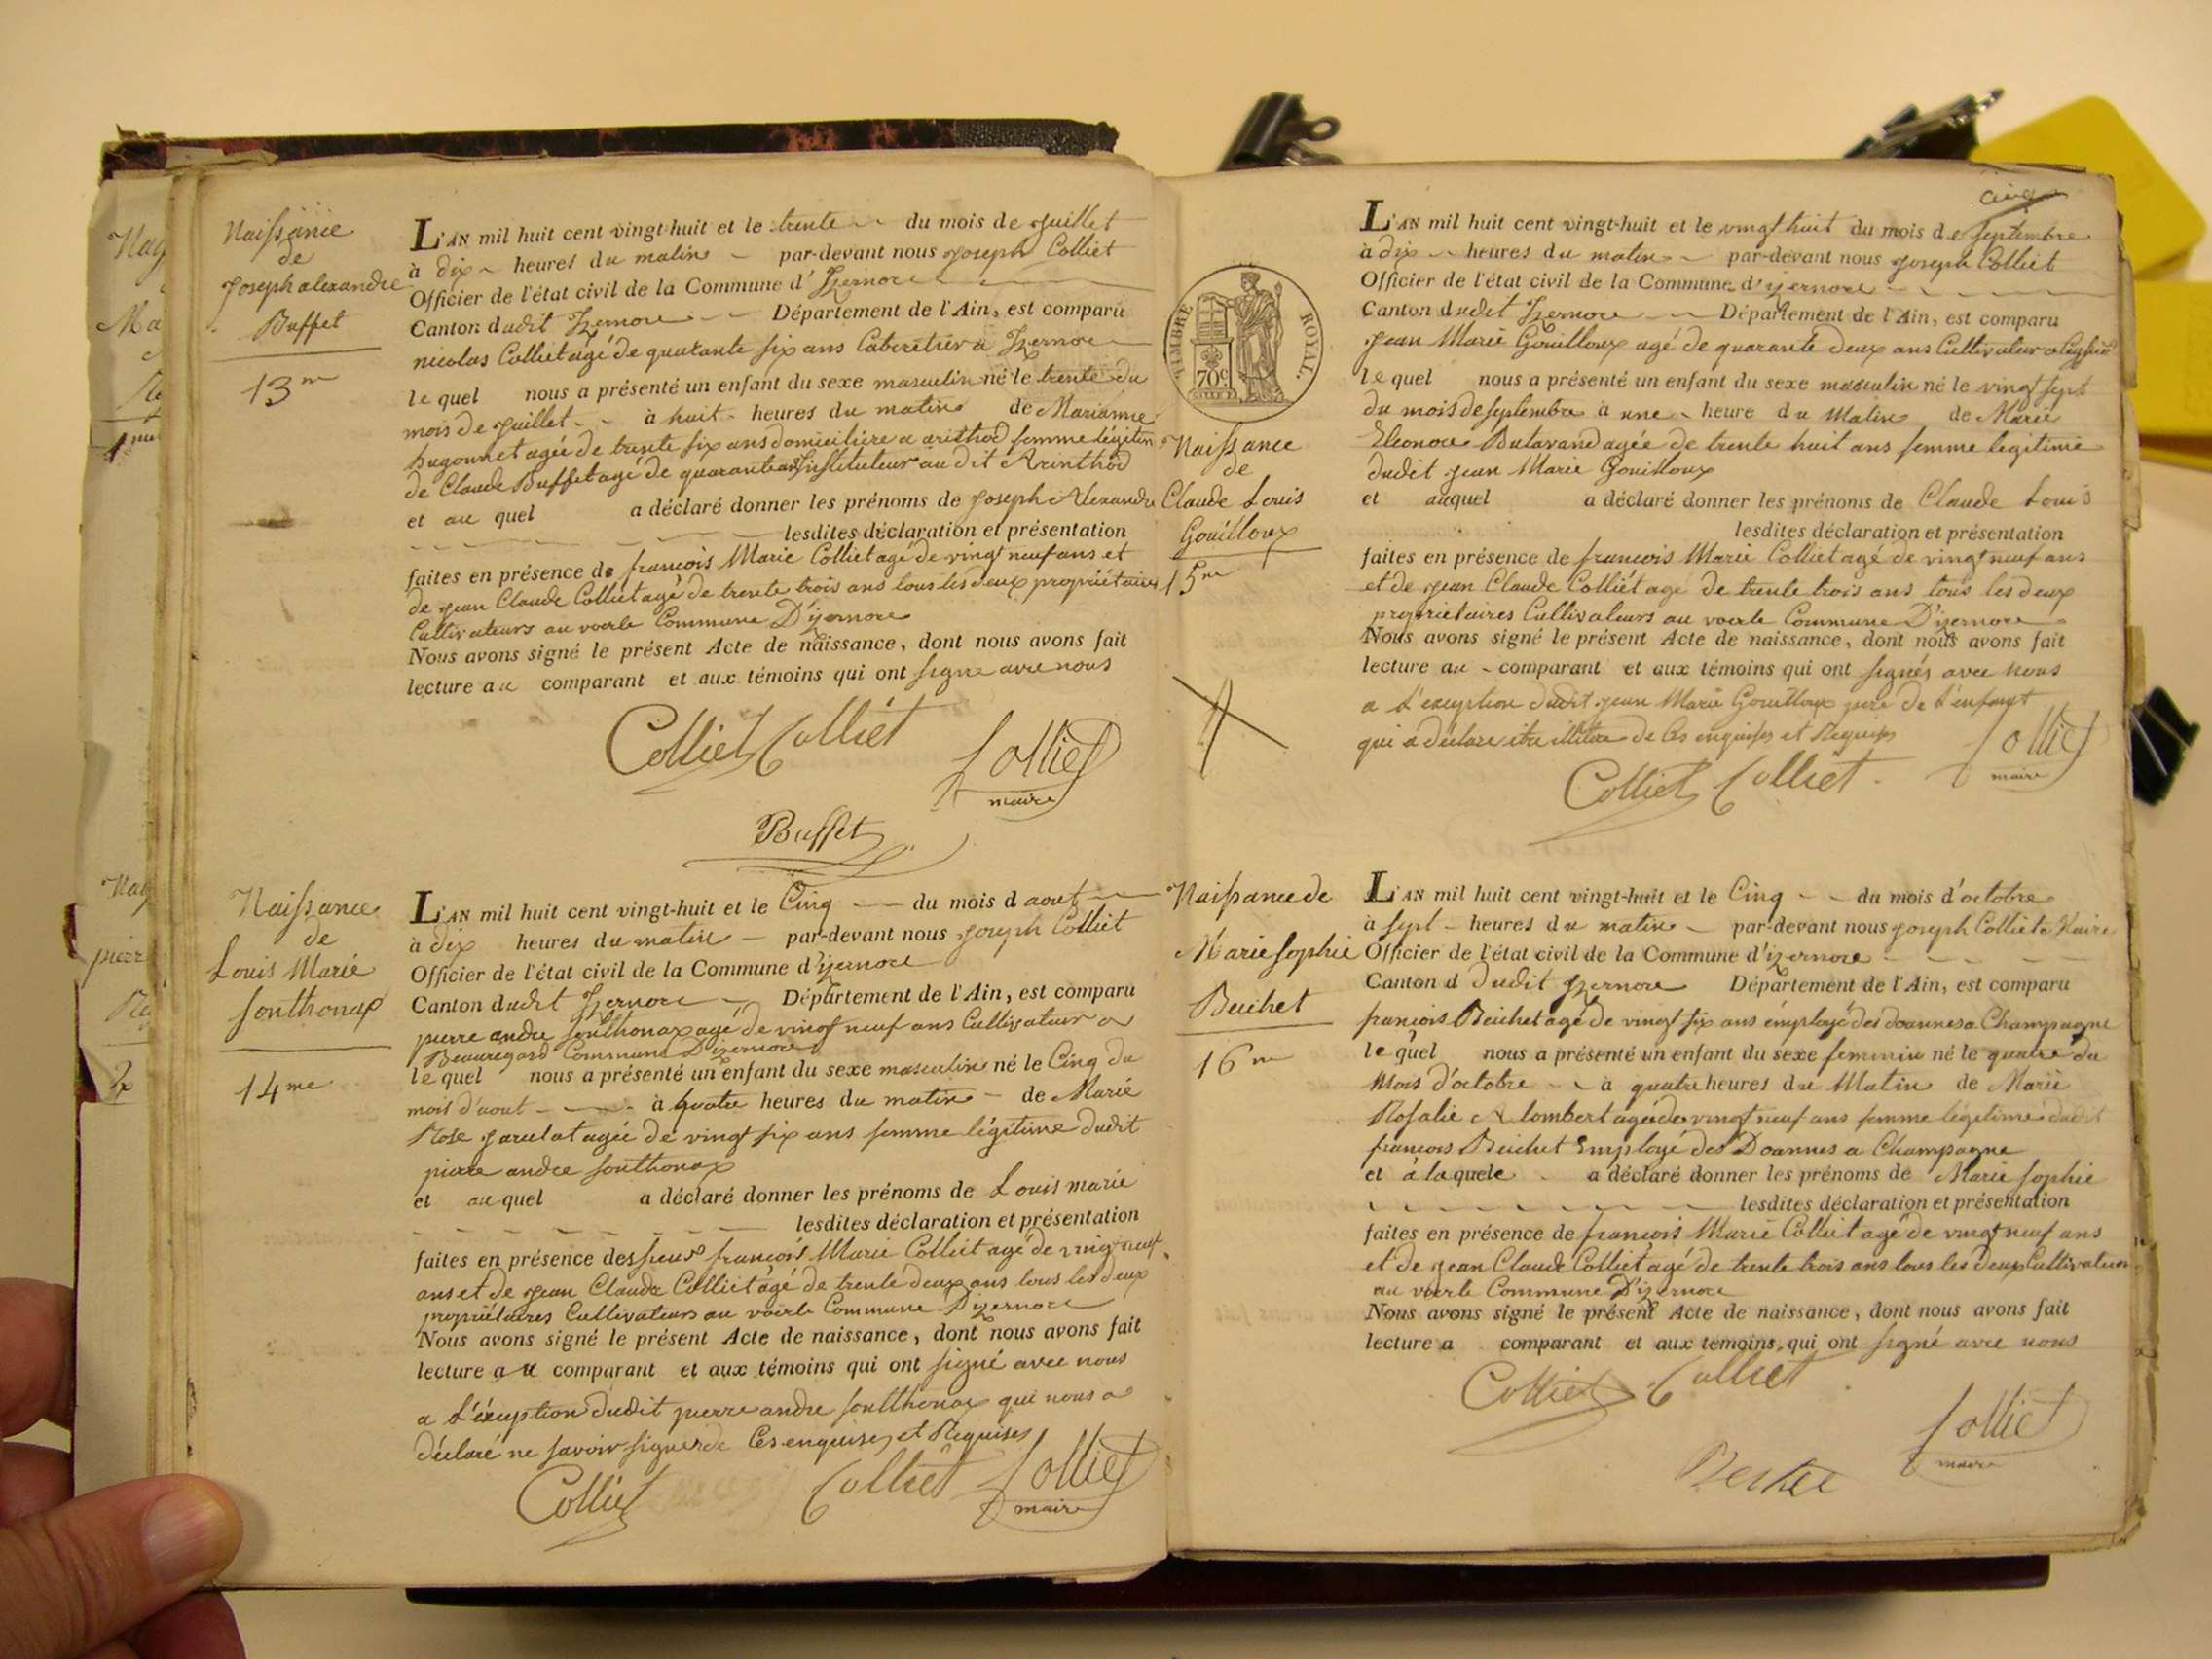 Naissance
de
Joseph alexandre
Buffet
13me
L'AN mil huit cent vingt-huit et le trente du mois de juillet
à dix heures du matin par-devant nous Joseph Colliet
Officier de l'état civil de la Commune d'Izernore
Canton dudit Izernore Département de l'Ain, est comparu
nicolas Colliet agé de quarante six ans Cabaretier à Izernore
le quel nous a présenté un enfant du sexe masculin né le trente du
mois de juillet à huit heures du matin de Marianne
hugonnet agée de trente six ans domiciliére a arinthod femme légitime
de Claude Buffet agé de quarante ans instituteur au dit Arinthod
et au quel a déclaré donner les prénoms de Joseph Alexandre
lesdites déclaration et présentation
faites en présence de françois Marie Colliet agé de vingt neuf ans et
de jean Claude Colliet agé de trente trois ans tous les deux propriétaires
Cultivateurs au voerle Commune D'izernore
Nous avons signé le présent Acte de naissance, dont nous avons fait
lecture au comparant et aux témoins qui ont signé avec nous
Colliet Colliet Colliet
maire
Buffet
Naissance
de
Louis Marie
sonthonax
14me
L'AN mil huit cent vingt-huit et le Cinq du mois d aout
à dix heures du matin par-devant nous joseph Colliet
Officier de l'état civil de la Commune d'izernore
Canton dudit Izernore Département de l'Ain, est comparu
pierre andre sonthonax agé de vingt neuf ans Cultivateur a
Beauregard Commune D'izernore
le quel nous a présenté un enfant du sexe masculin né le Cinq du
mois d'aout à quatre heures du matin de Marie
Rose agée de vingt six ans femme légitime dudit
pierre andre sonthonax
et au quel a déclaré donner les prénoms de Louis marie
lesdites déclaration et présentation
faites en présence des sieurs françois Marie Colliet agé de vingt neuf
ans et de jean Claude Colliet agé de trente deux ans tous les deux
propriétaires Cultivateurs au voerle Commune D'izernore
Nous avons signé le présent Acte de naissance, dont nous avons fait
lecture au comparant et aux témoins qui ont signé avec nous
a L'éxception dudit pierre andre sontthonax qui nous a
déclaré ne savoir signer de Ces enquises et Requises
Colliet Colliet Colliet
maire
TIMBRE ROYAL.
70c
Naissance
de
Claude Louis
Gouilloux
15me
cinq
L'AN mil huit cent vingt-huit et le vingt huit du mois de septembre
à dix heures du matin par-devant nous joseph Colliet
Officier de l'état civil de la Commune d'izernore
Canton dudit Izernore Département de l'Ain, est comparu
Jean Marie Gouilloux agé de quarante deux ans Cultivateur a
le quel nous a présenté un enfant du sexe masculin né le vingt sept
du mois de septembre à une heure du matin de Marie
Eleonore Butavand agée de trente huit ans femme legitime
dudit jean Marie Gouilloux
et auquel a déclaré donner les prénoms de Claude Louis
lesdites déclaration et présentation
faites en présence de francois Marie Colliet agé de vingt neuf ans
et de jean Claude Colliet agé de trente trois ans tous les deux
proprietaires Cultivateurs au voerle Commune D'izernore
Nous avons signé le présent Acte de naissance, dont nous avons fait
lecture au comparant et aux témoins qui ont signés avec nous
a L'exception dudit jean Marie Gouilloux pere de L'enfant
qui a déclaré etre illitere de Ces enquises et Requises
Colliet Colliet Colliet
maire
Naissance de
Marie Sophie
Beichet
16me
L'AN mil huit cent vingt-huit et le Cinq du mois d'octobre
à sept heures du matin par-devant nous joseph Colliet Maire
Officier de l'état civil de la Commune d'izernore
Canton d dudit Izernore Département de l'Ain, est comparu
françois Beichet agé de vingt six ans émployé des doannes a Champagne
le quel nous a présenté un enfant du sexe feminin né le quatre du
Mois d'octobre à quatre heures du Matin de Marie
Rosalie Alombert agée de vingt neuf ans femme légitime dudit
francois Beichet Employé des Doannes a Champagne
et à laquele a déclaré donner les prénoms de Marie Sophie
lesdites déclaration et présentation
faites en présence de françois Marie Colliet agé de vingt neuf ans
et de jean Claude Colliet agé de trente trois ans tous les deux Cultivateurs
au voerle Commune D'izernore
Nous avons signé le présent Acte de naissance, dont nous avons fait
lecture a comparant et aux témoins qui ont signé avec nous
Colliet Colliet
Colliet
maire